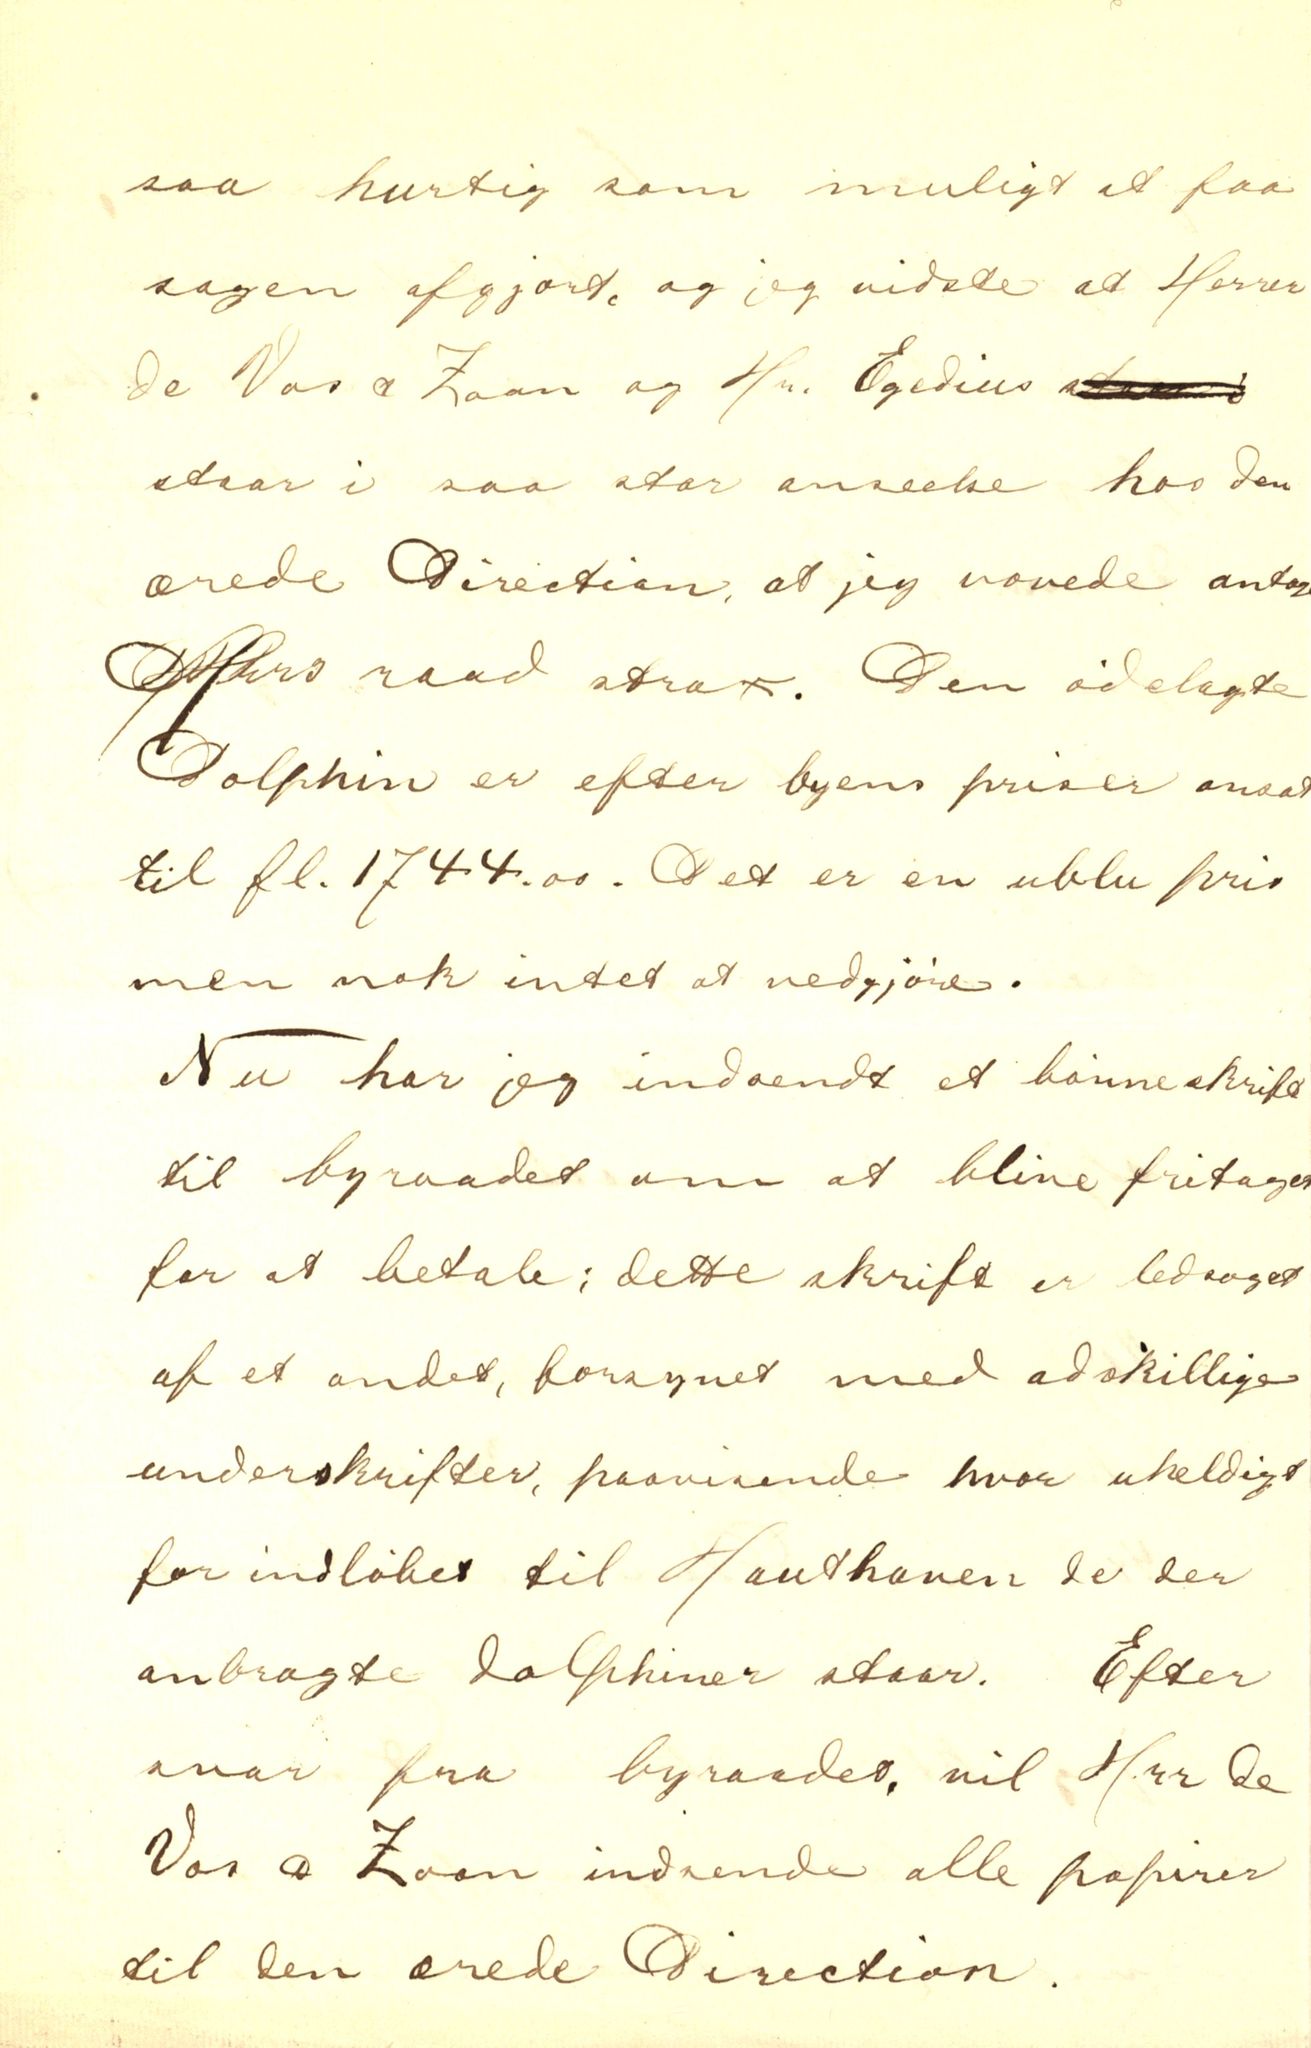 saa hurtig som muligt at faa
sagen afgjort, og jeg vidste at Herrer
de Vos & Zoon og Hr. Egedius
staar i saa stor anseelse hos den
ærede Direction, at jeg vovede antage
raad strax. Den ødelagte
Dolphin er efter byens priser ansat
til fl. 1744.00. Det er en ublu pris
men nok intet at vedgjøre.
Nu har jeg indsendt et bønneskrift
til byraadet om at blive fritaget
for at betale; dette skrift er ledsaget
af et andet, forsynet med adskillige
underskrifter, paavisende hvor uheldigt
for indløbet til Houthaven de der
anbragte dolphiner staar. Efter
svar fra byraadet, vil Hrr de
Vos & Zoon indsende alle papirer
til den ærede Direction.